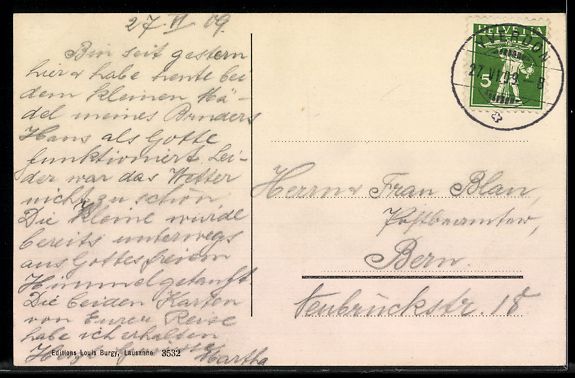 27 VI 09.
Bin seit gestern
hier & habe heute bei
dem kleinen Mä-
del meines Bruders
Hans als Gotte
funktioniert. Lei-
der war das Wetter
nicht zu schön.
Die Kleine wurde
bereits unterwegs
aus Gottes freiem
Himmel getauft
Die beiden Karten
von Eurer Reise
habe ich erhalten
Martha
Editions Louis Burgy, Lausanne 3532
HELVETIA
5
YVERDON
27 VI 09
8
Herrn & Frau Blau,
Postbeamter,
Bern.
Neubrückstr. 18